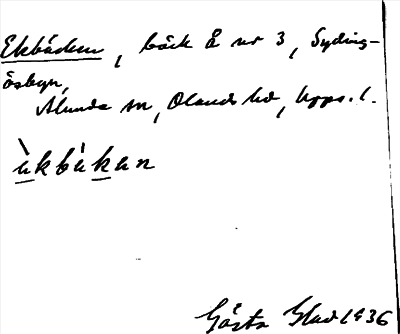 Ekbäcken, bäck Å nr 3, Syding-
åsbyn,
Alunda sn, Olands hd, Upps. l.
ukbäkan
Gösta Glad 1936